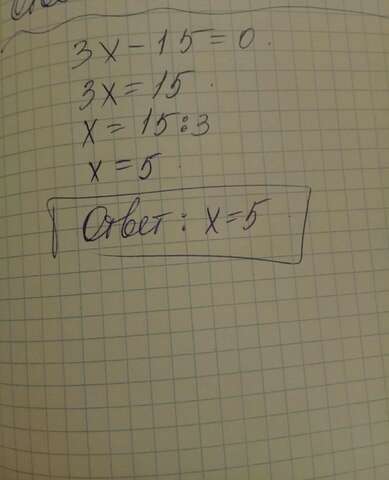 3x - 15 = 0.
3x = 15
x = 15 : 3
x = 5
Ответ: x = 5